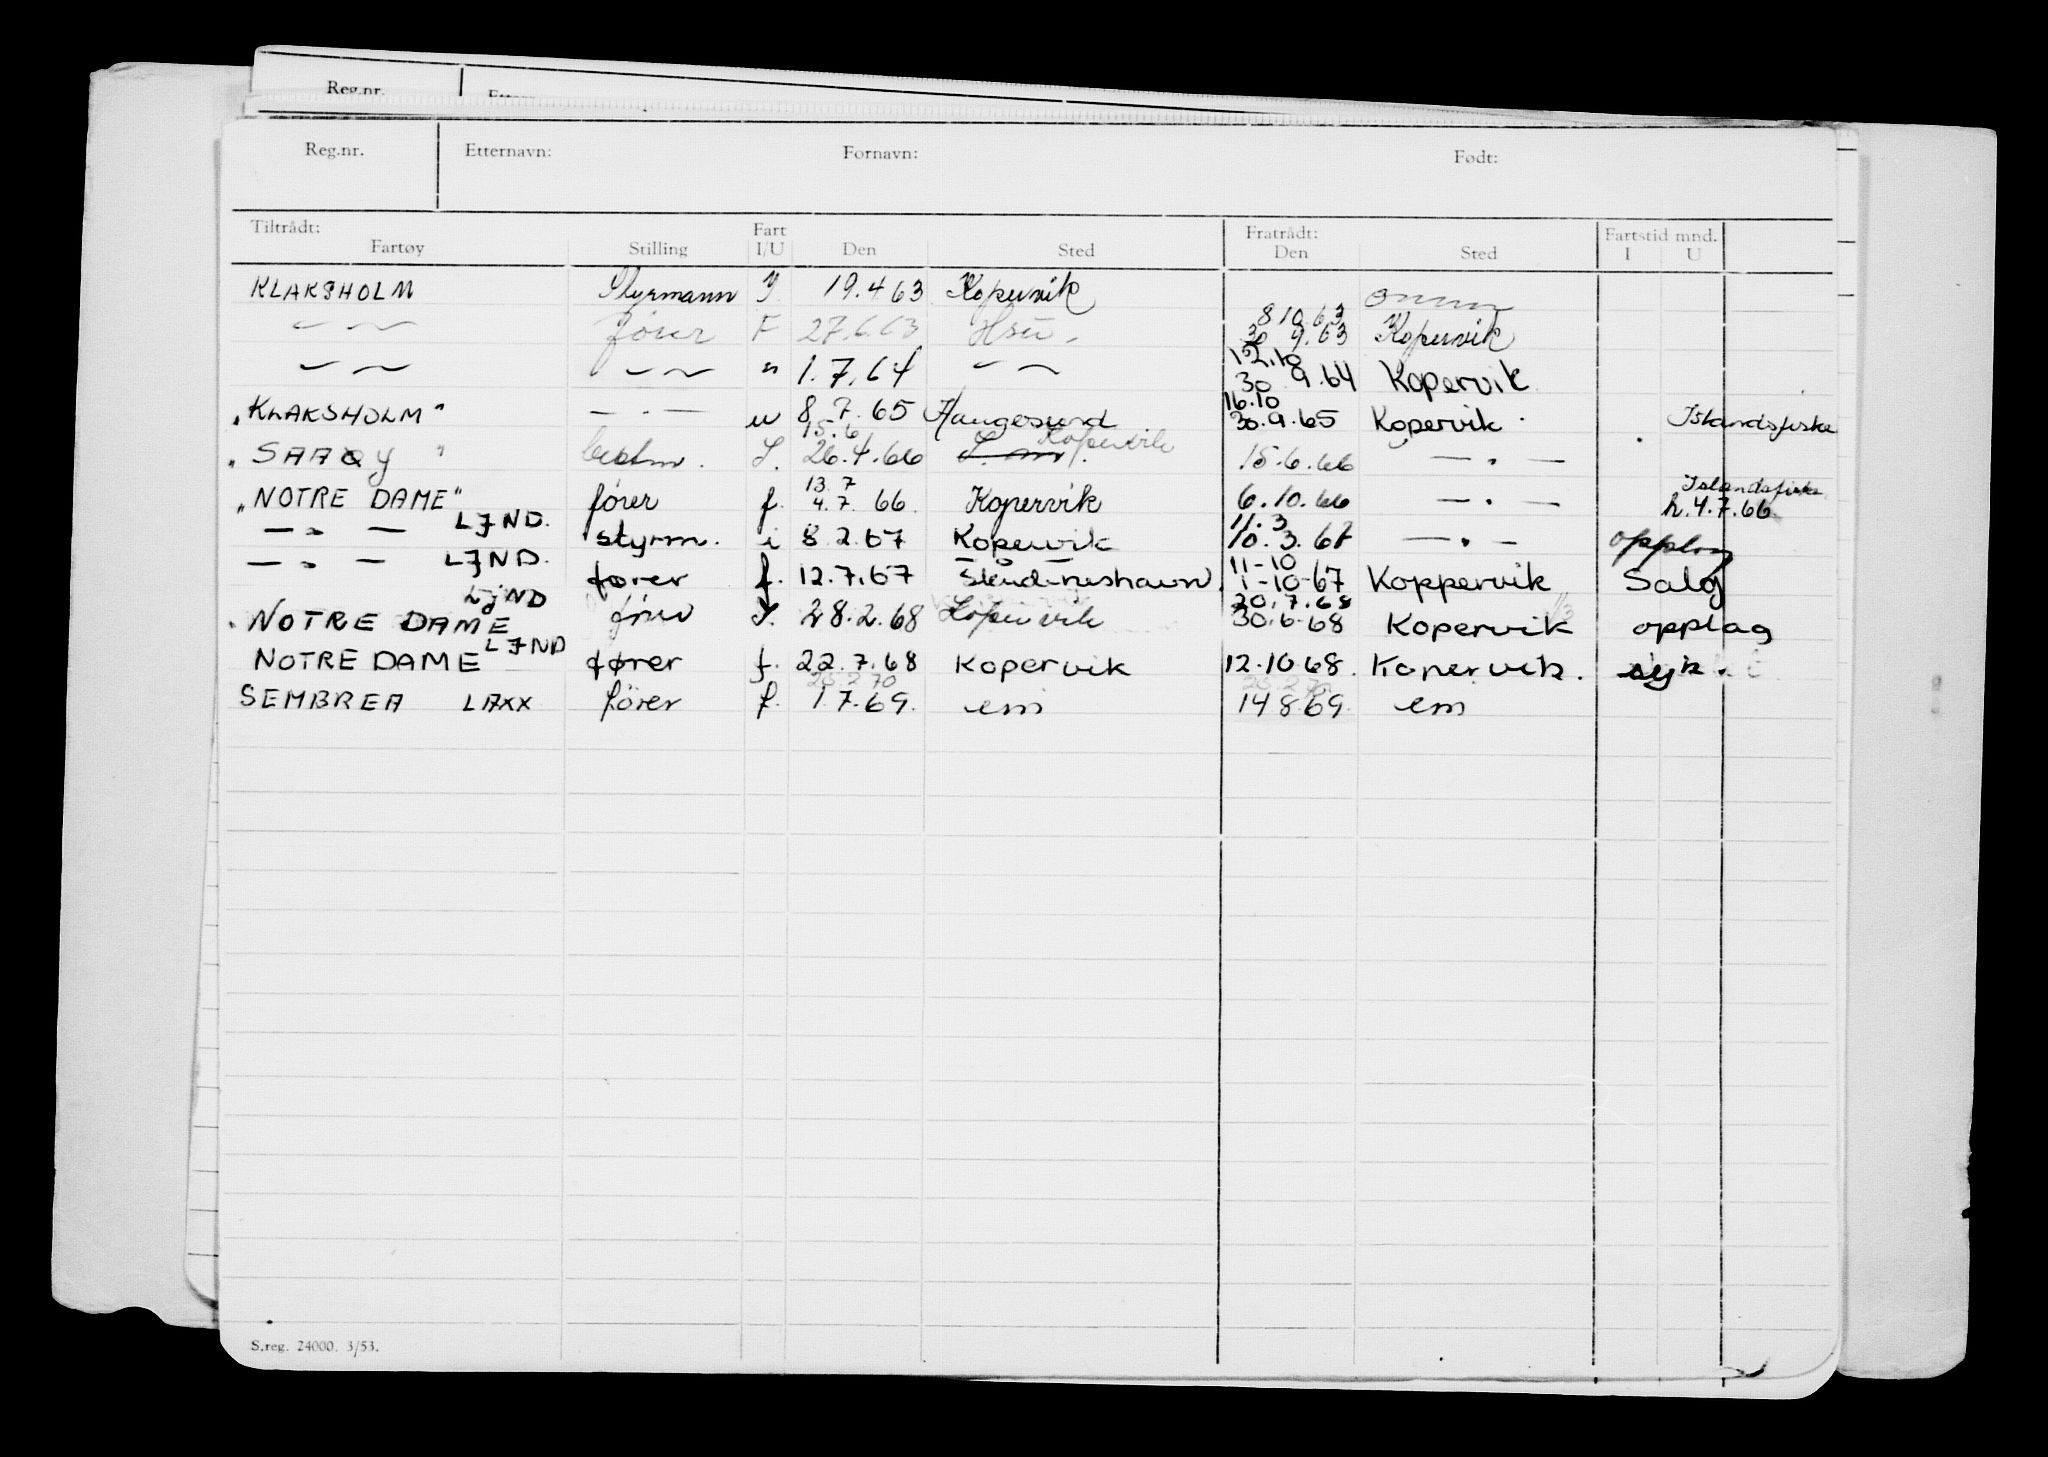 Reg.nr.
Reg.nr. Etternavn: Fornavn: Født:
Tiltrådt: Fart Fratrådt: Fartstid mnd.
Fartøy Stilling I/U Den Sted Den Sted I U
KLAKSHOLM Styrmann I 19.4 63 Kopervik omm
8 10.63
— " — fører F 27.6.63 Hsu. 30 9.63 Kopervik
12.10
— " — — " — " 1.7.64 — " — 30 9.64 Kopervik
16.10
"KLAKSHOLM" — . — u 8 7.65 Haugesund 30.9.65 Kopervik Islandsfiske
15.6 Kopervik
26.4.66 15.6.66 — " —
13.7 Islandsfiske
"NOTRE DAME" fører f. 4.7. 66. Kopervik 6.10.66 — " — h.4.7.66
LJND. 11.3
— " — styrm. i 8.2.67 Kopervik 10.3.67 — " — opplag
LJND. 11-10
— " — fører f. 12.7.67 Skudeneshavn. 1-10-67 Koppervik Salg
LJND 20.7.68
NOTRE DAME fører I. 28.2.68 Kopervik 30.6.68 Kopervik opplag
LJND
NOTRE DAME fører f. 22.7.68 Kopervik 12.10.68. Kopervik. syk
25.2.70 25.2.70
SEMBREA LAXX fører f. 1.7.69. em 14 8.69. em
S.reg. 24000. 3/53.